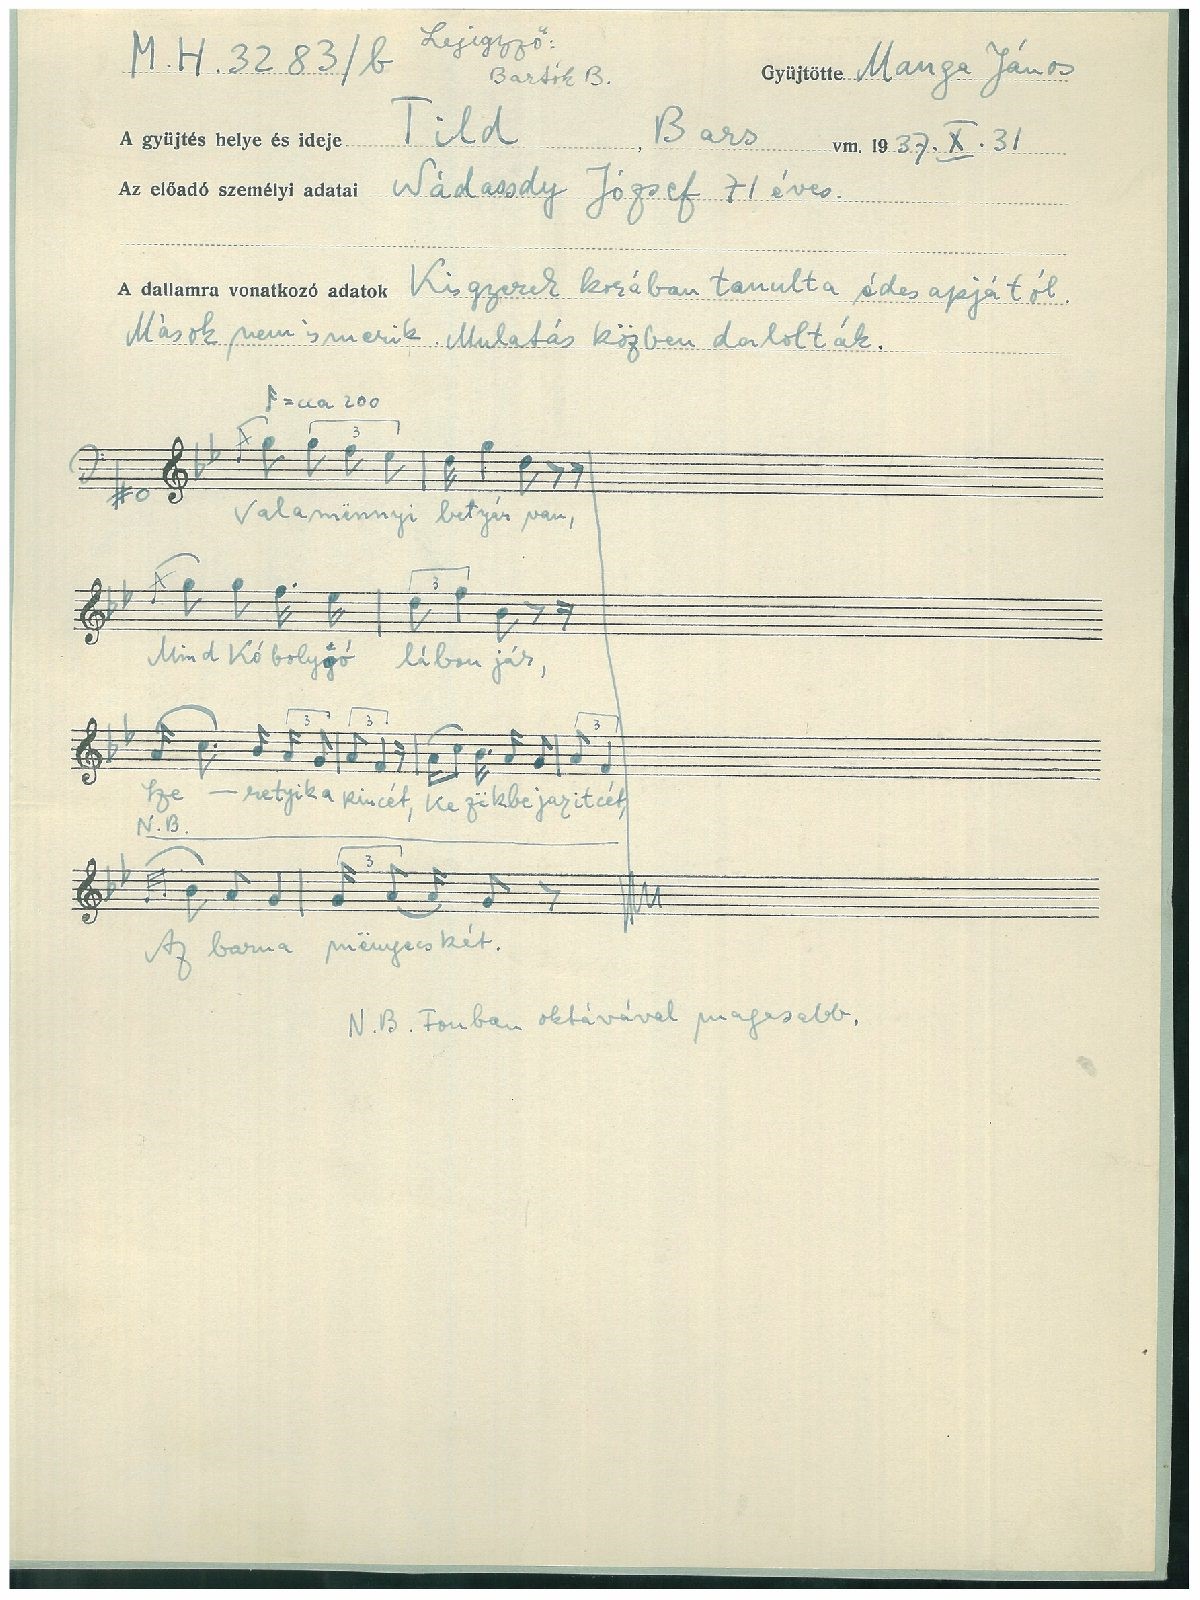 M.H. 3283/b Lejegyző:
Bartók B.
Gyüjtötte Manga János
A gyüjtés helye és ideje Tild, Bars vm. 1937. X. 31
Az előadó személyi adatai Wádassdy József 71 éves.
A dallamra vonatkozó adatok Kisgyerek korában tanulta édesapjától.
Mások nem ismerik. Mulatás közben dalolták.
♪=cca 200
3
Valamënnyi betyár van,
3
Mind Kóbolygó lábon jár,
3 3 3
Sze – retyika pincét,
N.B.
3
Az barna mënyecskét.
N.B. Fonban oktávával magasabb.